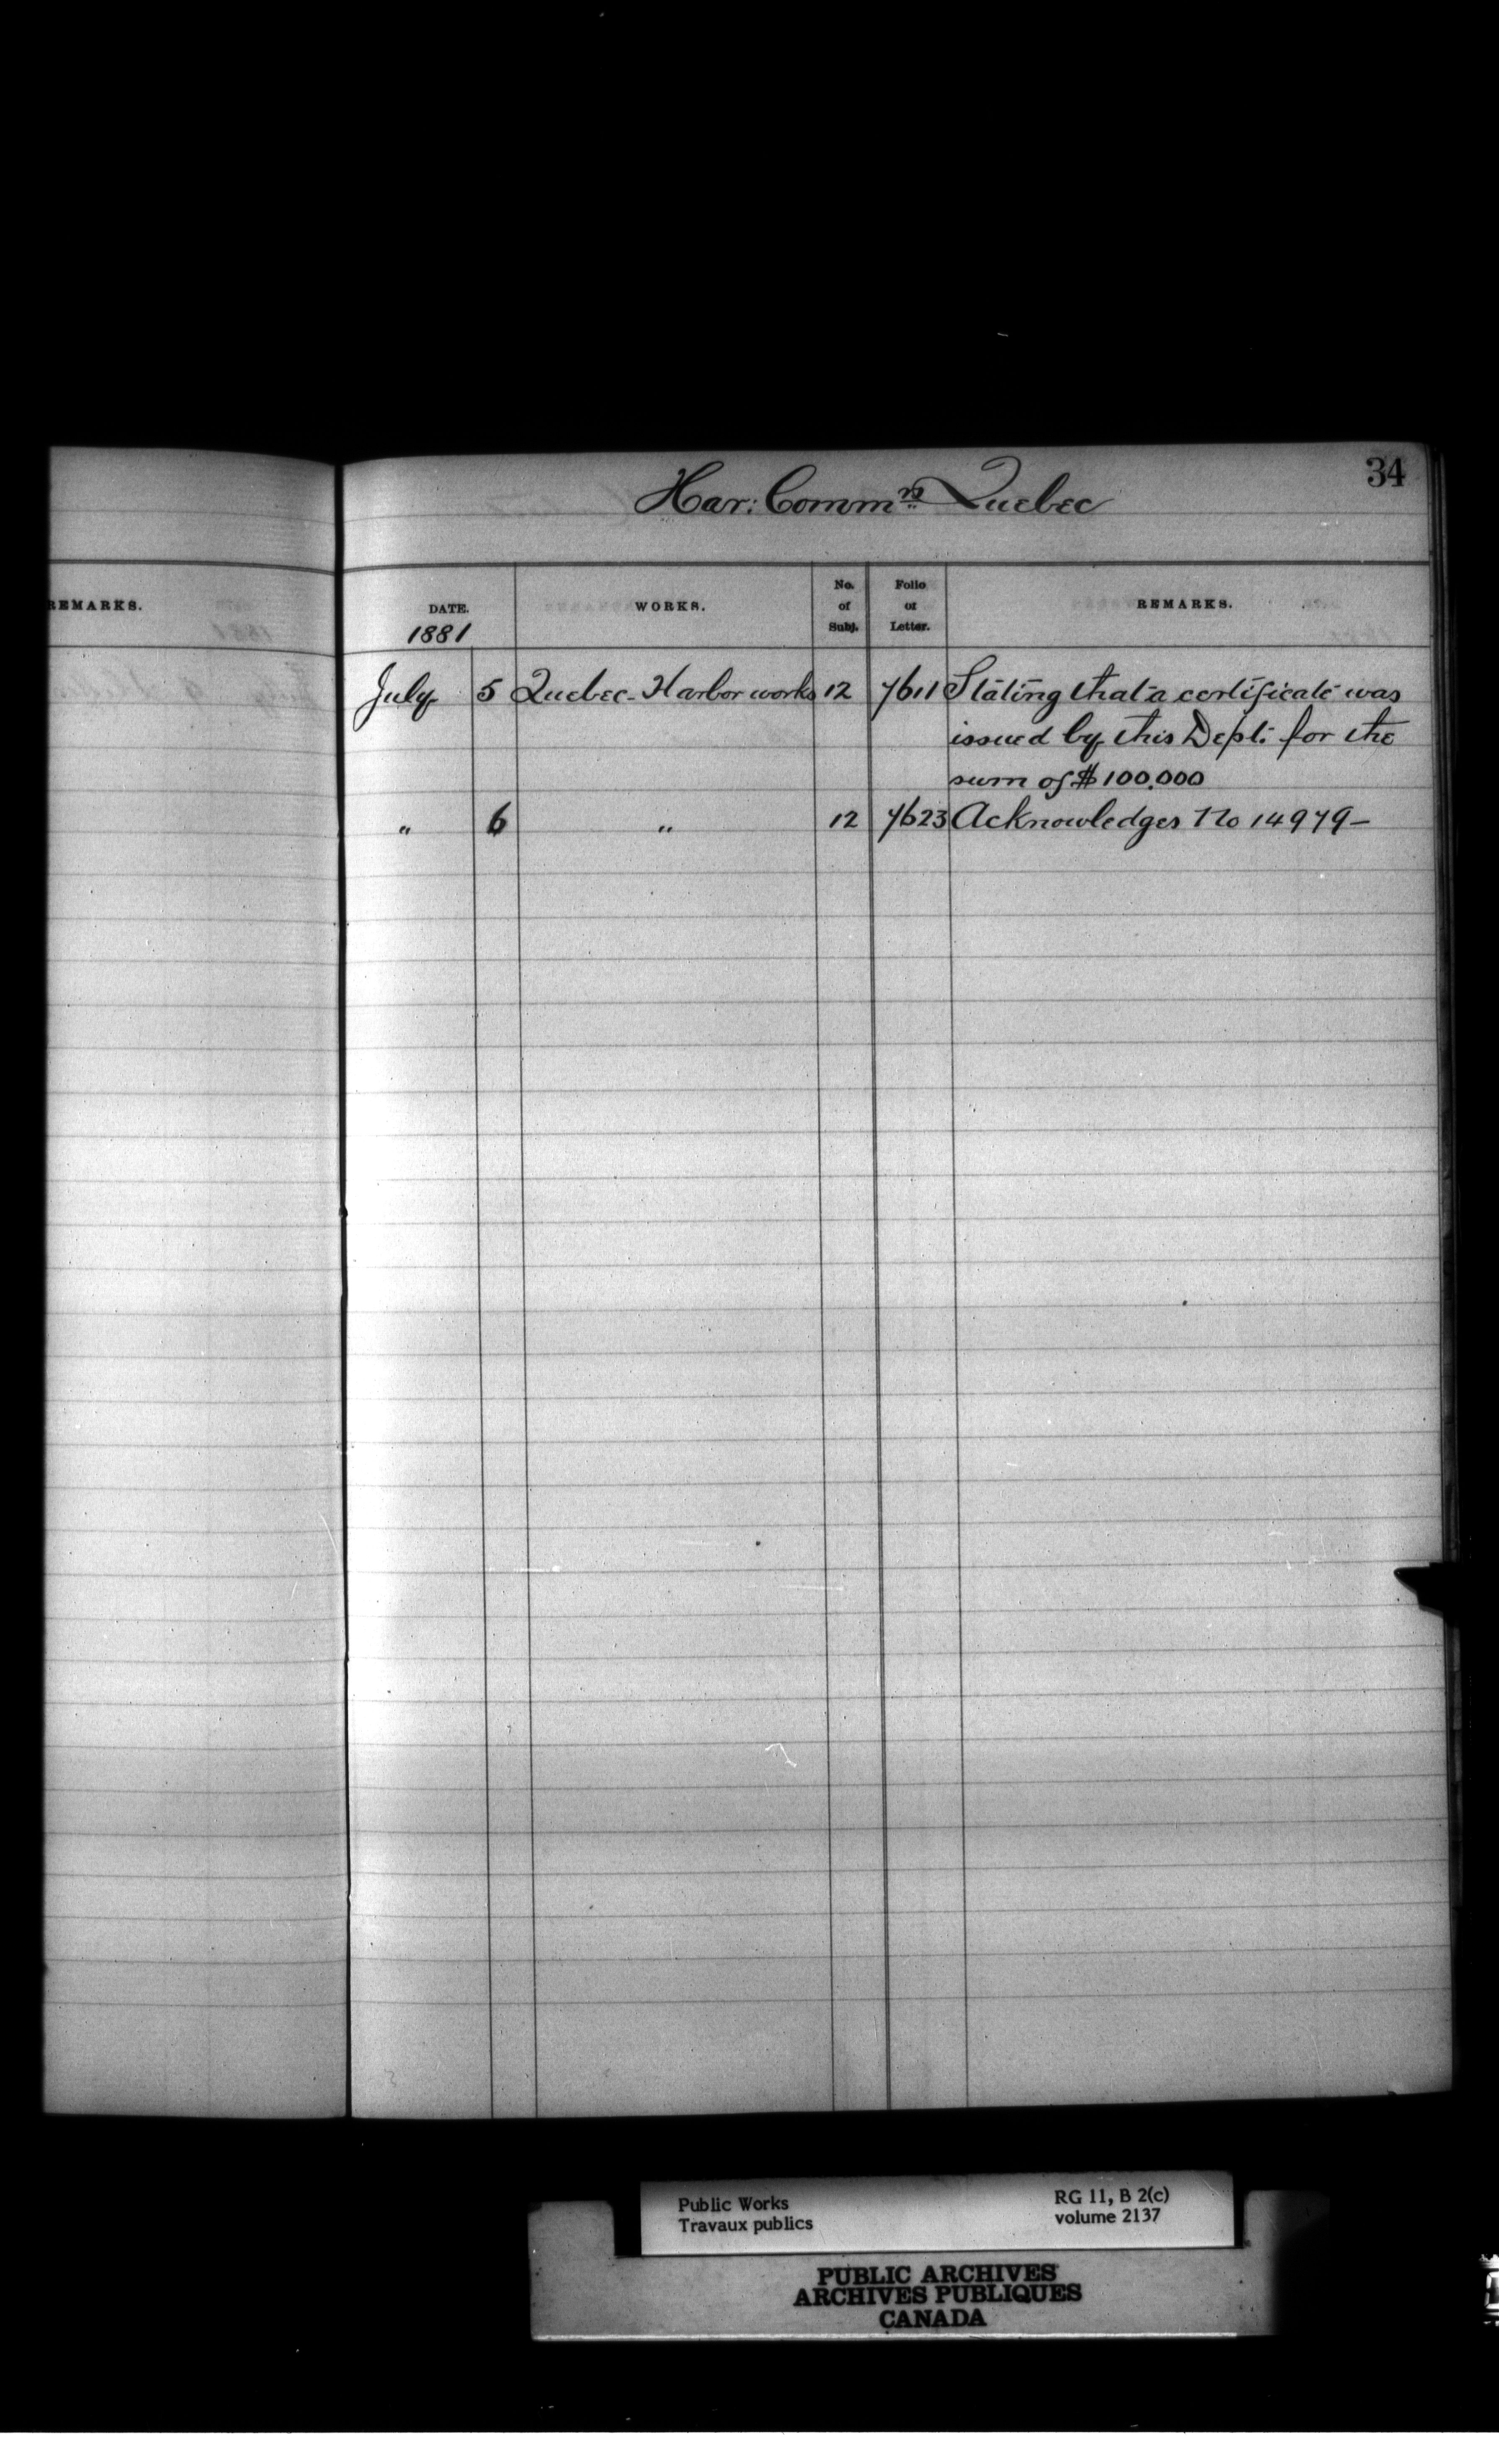 34
Har: Comm.rs Quebec
REMARKS.
DATE. WORKS. No. of Subj. Folio or Letter. REMARKS.
1881
July 5 Quebec - Harbor works 12 7611 Stating that a certificate was
issued by this Dept: for the
sum of $100.000
" 6 " 12 7623 Acknowledges No 14979 -
Public Works RG 11, B 2(c)
Travaux publics volume 2137
PUBLIC ARCHIVES
ARCHIVES PUBLIQUES
CANADA